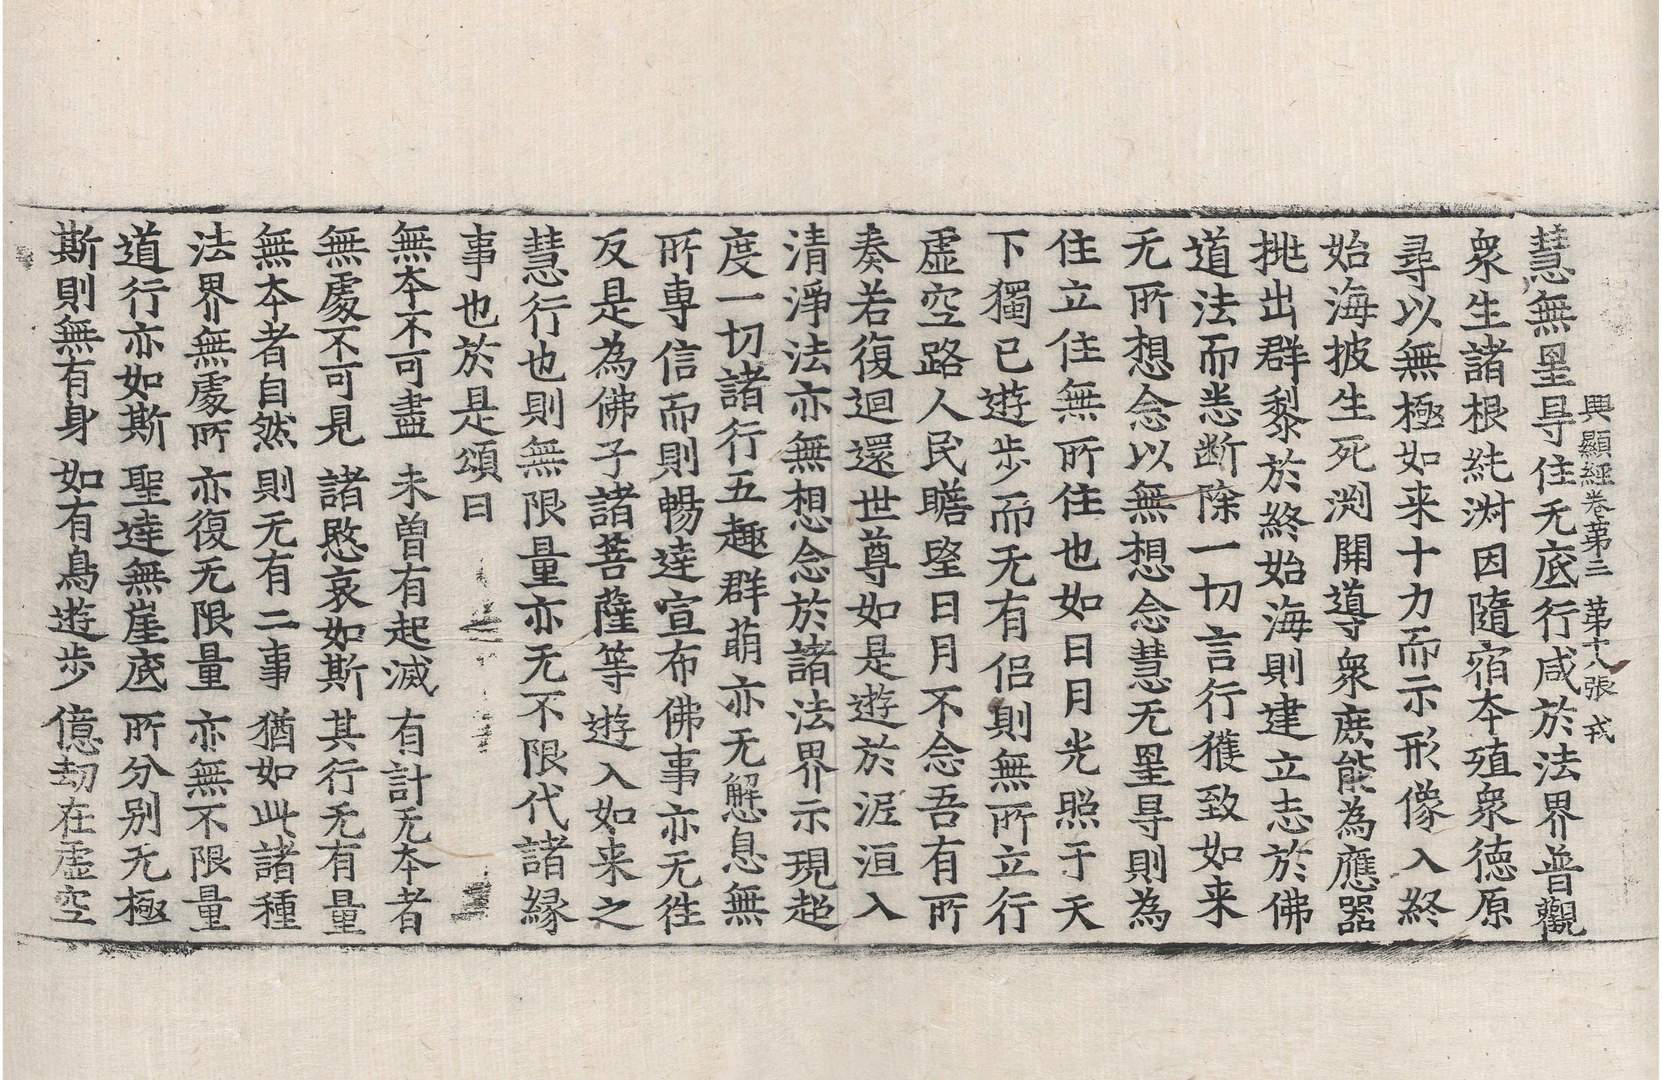 興顯經卷第三 第十八張 戎
慧無罣㝵住无底行咸於法界普觀
衆生諸根純淑因隨宿本殖衆德原
尋以無極如来十力而示形像入終
始海披生死渕開導衆庶能為應器
挑出群黎於終始海則建立志於佛
道法而悉断除一切言行獲致如来
无所想念以無想念慧无罣㝵則為
住立住無所住也如日月光照于天
下獨已遊步而无有侶則無所立行
虛空路人民瞻望日月不念吾有所
奏若復迴還世尊如是遊於泥洹入
清淨法亦無想念於諸法界示現超
度一切諸行五趣群萌亦无懈息無
所專信而則暢達宣布佛事亦无徃
反是為佛子諸菩薩等遊入如来之
慧行也則無限量亦无不限代諸縁
事也於是頌曰
無本不可盡 未曽有起滅 有計无本者
無處不可見 諸愍哀如斯 其行无有量
無本者自然 則无有二事 猶如此諸種
法界無處所 亦復无限量 亦無不限量
道行亦如斯 聖達無崖底 所分別无極
斯則無有身 如有鳥遊步 億劫在虛空